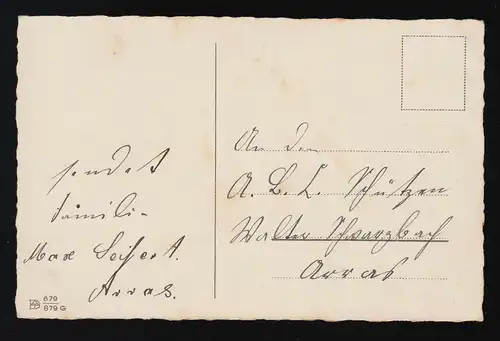 sendet
Famili-
Max Seifert.
Arras.
679
879 G
An den
A. B. C. Schützen
Walter Schwarzbach
Arras